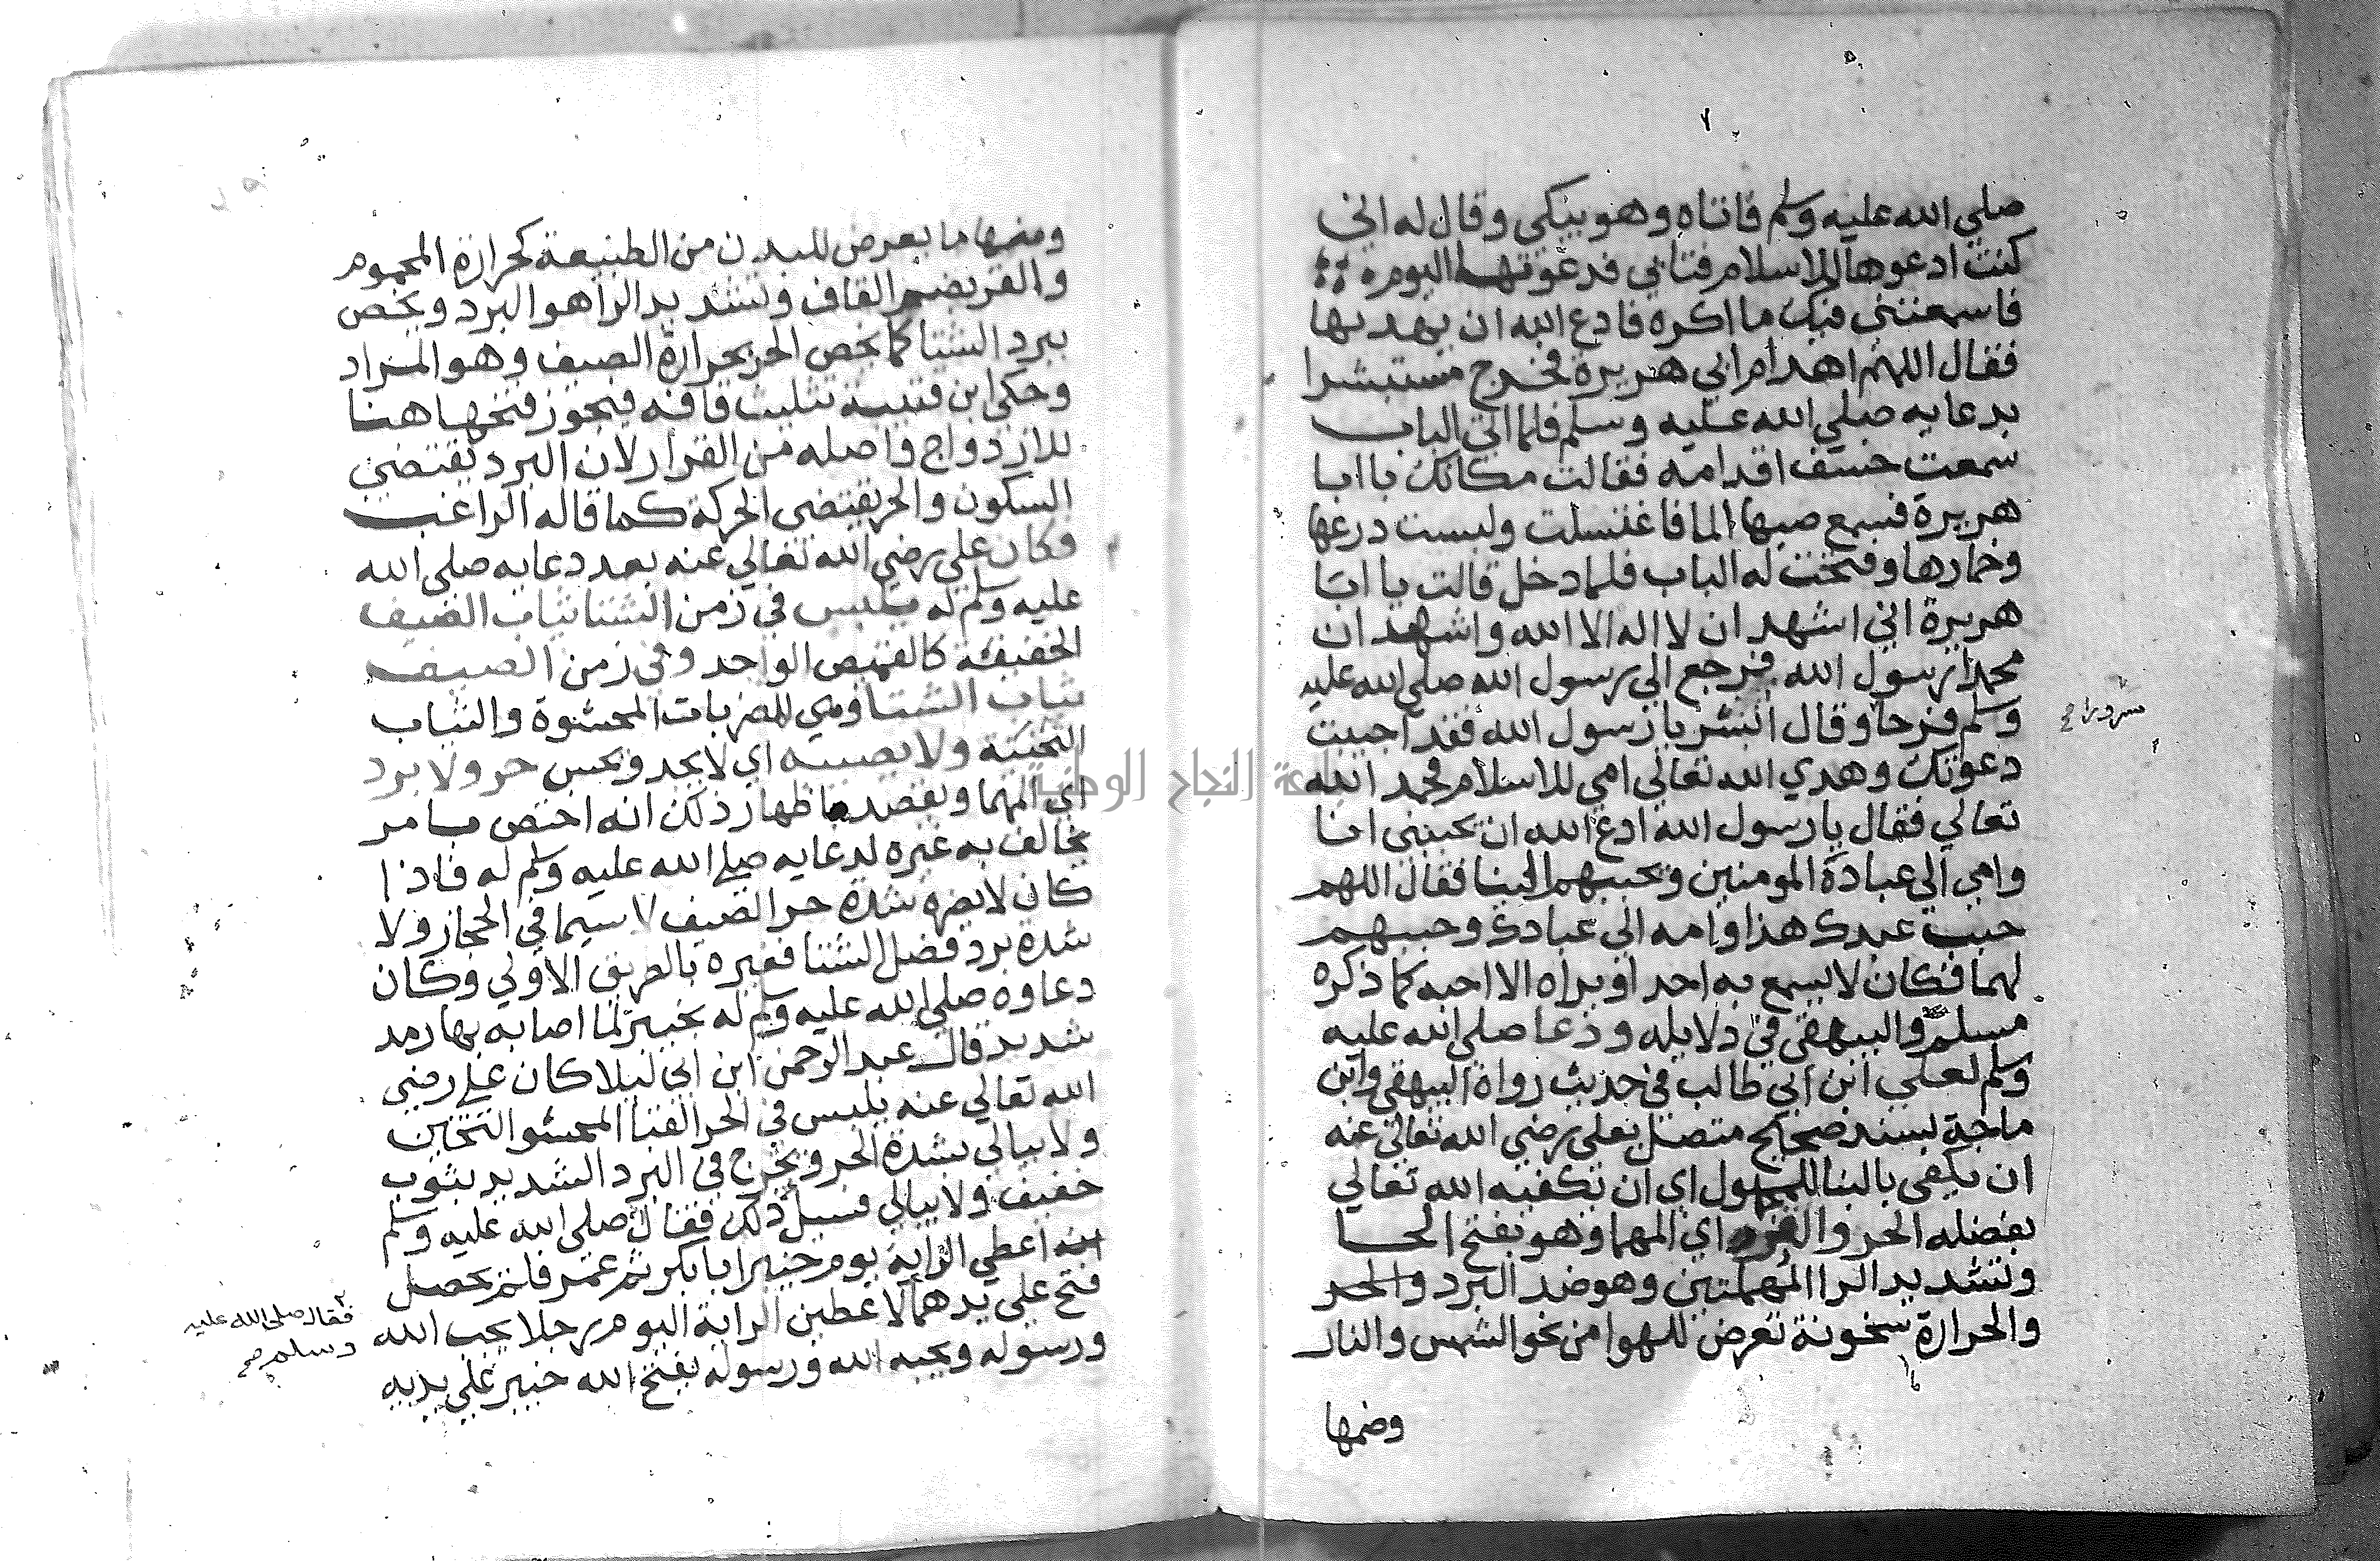 صلي الله عليه وسلم فاتاه وهو يبكي وقال له اني
كنت ادعوها للاسلام فتابي فدعوتها اليوم
فاسمعتني فيك ما اكره فادع الله ان يهديها
فقال اللهم اهد ام ابي هريرة فخرج مستبشرا
بدعايه صلي الله عليه وسلم فلما اتى الباب
سمعت حسف اقدامه فقالت مكانك يا ابا
هريرة فسمع صبها الما فاغتسلت ولبست درعها
وخمارها وفتحت له الباب فلما دخل قالت يا ابا
هريرة اني اشهد ان لا اله الا الله واشهد ان
محمدا رسول الله فرجع الي رسول الله صلى الله عليه
وسلم فرحا وقال ابشر يا رسول الله فقد اجيبت
دعوتك وهدي الله تعالى امي للاسلام فحمد الله
تعالي فقال يا رسول الله ادع الله ان يحببني انا
وامي الى عباده المومنين ويحببهم الينا فقال اللهم
حبب عبدك هذا وامه الى عبادك وحببهم
لهما فكان لا يسمع به احد او يراه الا احبه كما ذكره
مسلم والبيهقي في دلايله ودعا صلى الله عليه
وسلم لعلي ابن ابي طالب في حديث رواه البيهقي وابن
ماجة بسند صحيح متصل بعلي رضي الله تعالى عنه
ان يكفي بالبنا للمجهول اي ان يكفيه الله تعالي
بفضله الحر والقر اي المهما وهو بفتح الحا
وتشديد الرا المهملتين وهو ضد البرد والحر
والحرارة سخونة تعرض للهوا من نحو الشمس والنار
ومنها
ومنها ما يعرض للبدن من الطبيعة كحرارة المحموم
والقر بضم القاف وتشديد الرا هو البرد ويخص
ببرد الشتا كما يخص الحر بحرارة الصيف وهو المراد
وحكى ابن قتيبة تثليث قافه فيجوز فتحها هنا
للازدواج واصله من القرار لان البرد يقتضي
السكون والحر يقتضي الحركة كما قاله الراغب
فكان علي رضي الله تعالي عنه بعد دعايه صلى الله
عليه وسلم له يلبس في زمن الشتا ثياب الصيف
الخفيفة كالقميص الواحد وفي زمن الصيف
ثياب الشتا وهي المضربات المحشوة والثياب
الثخينة ولا يصيبه اي لا يجد ويحس حر ولا برد
اي المهما ويقصد باظهار ذلك انه اختص بامر
يخالف به غيره لدعايه صلي الله عليه وسلم له فاذا
كان لا يضره شدة حر الصيف لا سيما في الحجاز ولا
شدة برد فصل الشتا فغيره بالطريق الاولي وكان
دعاوه صلى الله عليه وسلم له بخيبر لما اصابه بها رمد
شديد قال عبد الرحمن ابن ابي ليلا كان علي رضي
الله تعالي عنه يلبس في الحر القبا المحشو الثخين
ولا يبالي بشدة الحر ويخرج في البرد الشديد بثوب
خفيف ولا يبالي فسيل ذلك فقال صلى الله عليه وسلم
انه اعطي الراية يوم خيبر ابا بكر ثم عمر فلم يحصل
فتح على يدهما لاعطين الراية اليوم رجلا يحب الله
ورسوله ويحبه الله ورسوله يفتح الله خيبر على يديه
فقال صلى الله عليه
وسلم صح
جامعة النجاح الوطنية